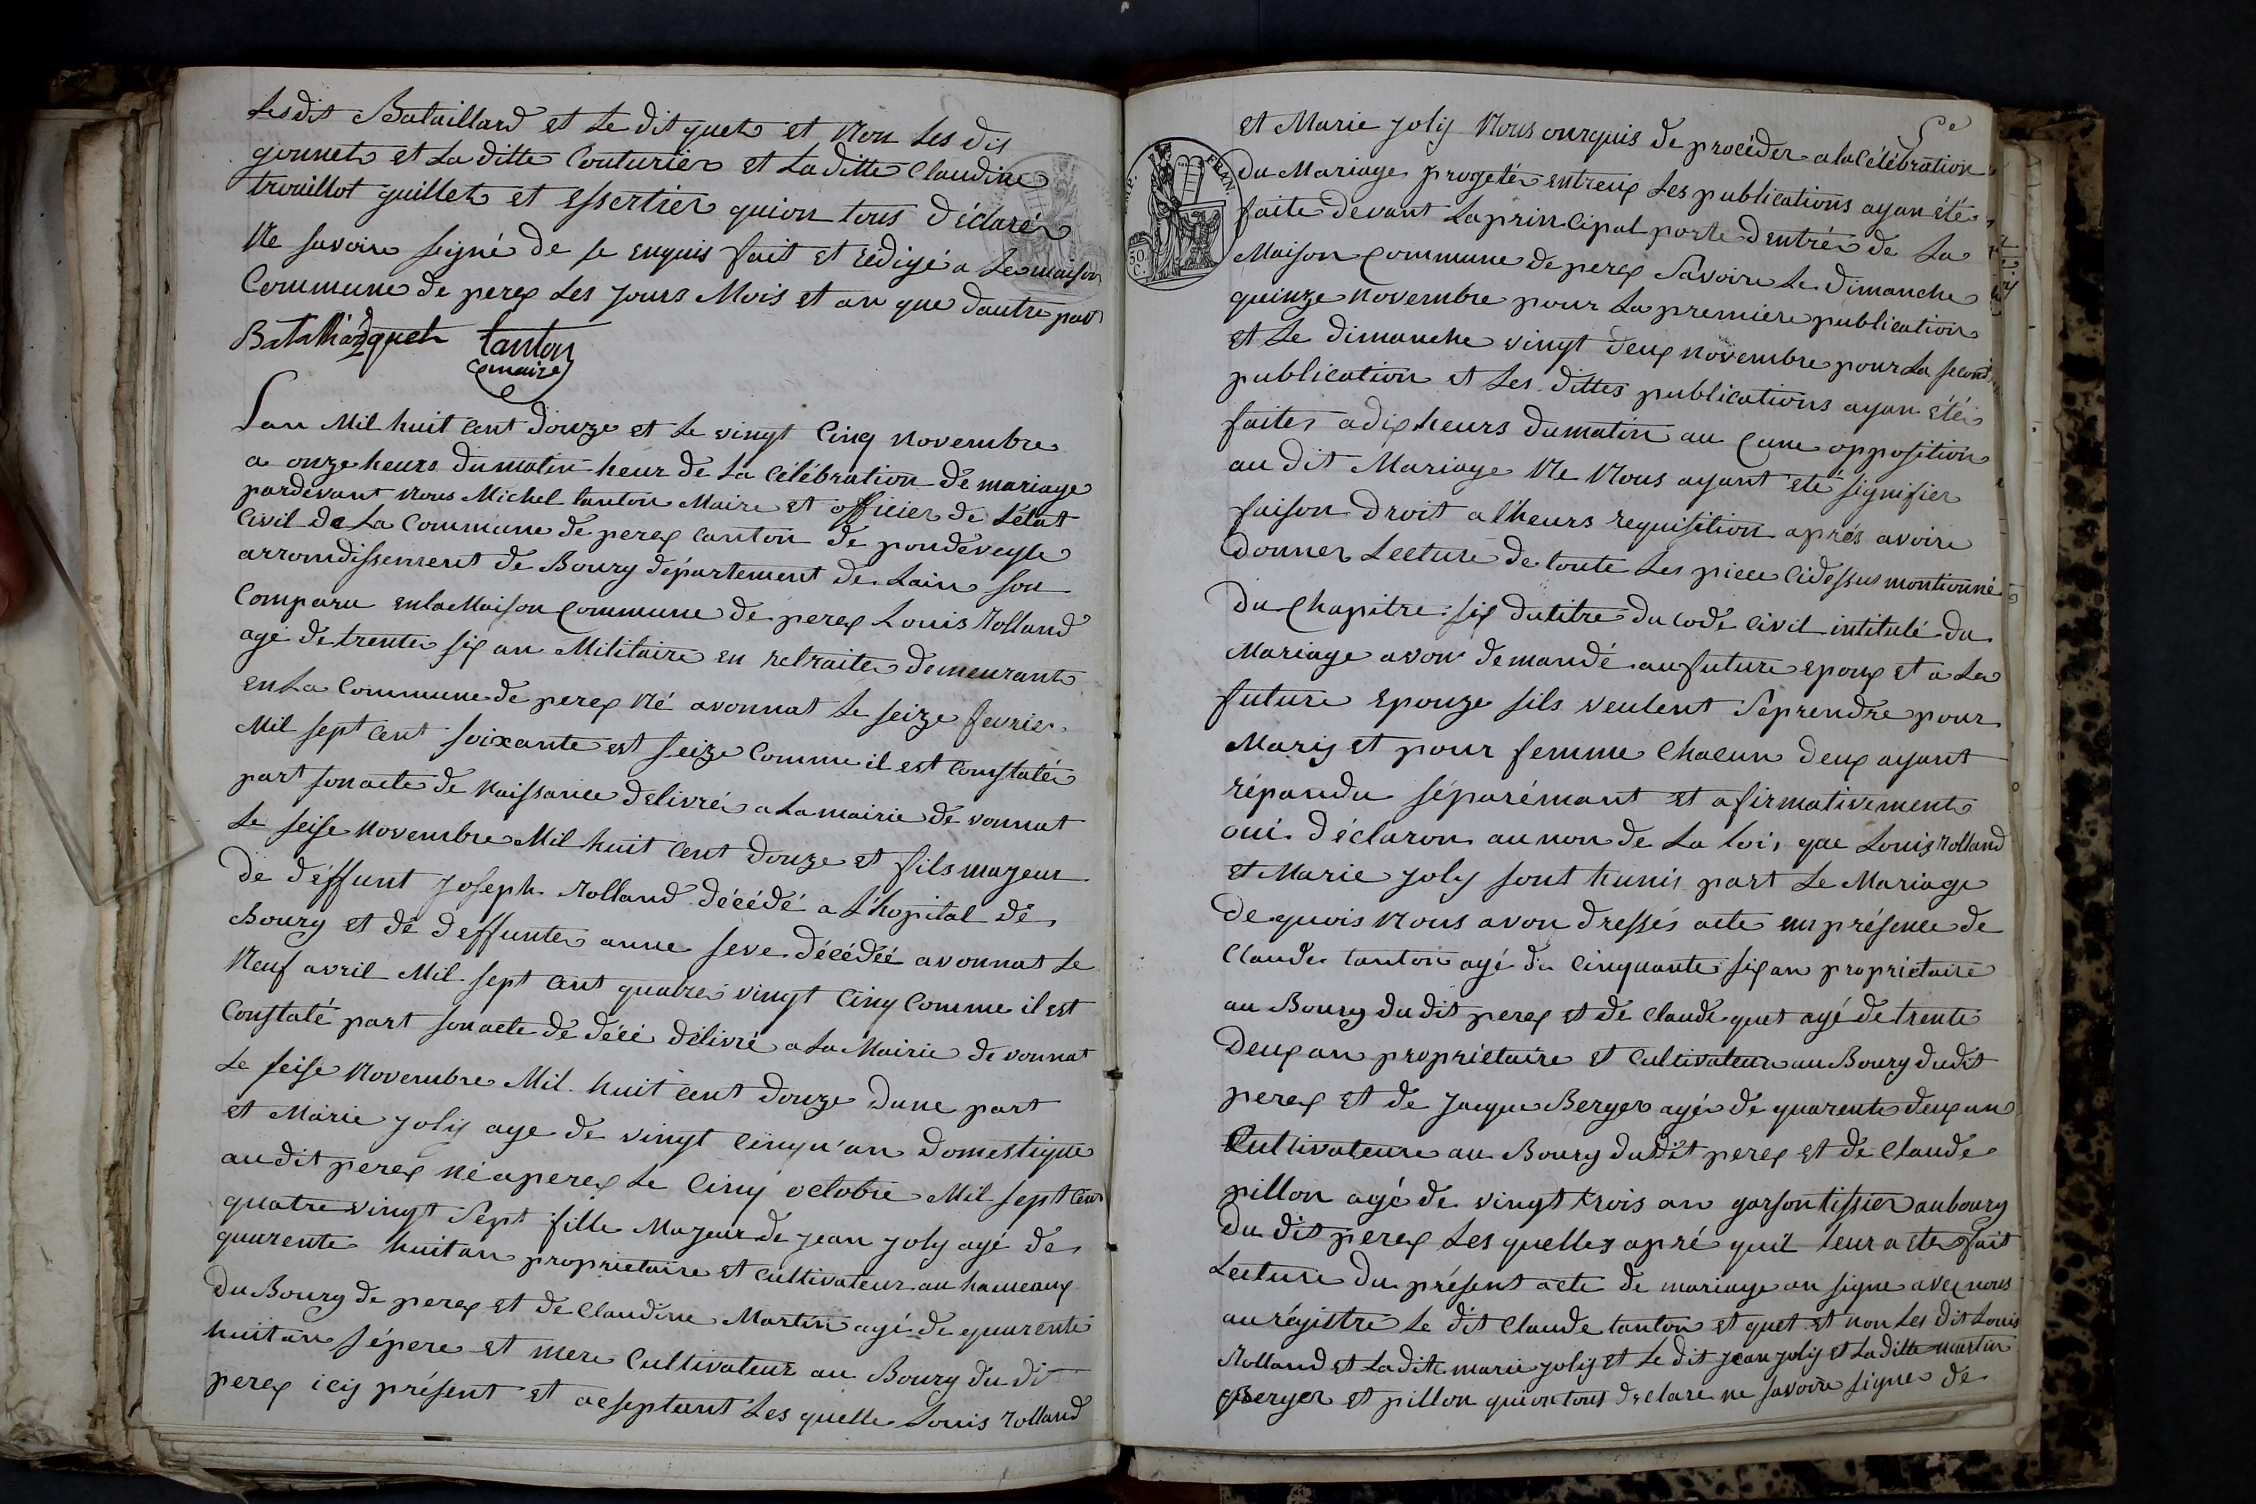 Lesdit Bataillard et Le dit quet et Non Les dis
gonnet et La ditte Couturier et Laditte Claudine
trouillot guillet et Essertier quion tous Déclaré
Ne savoir signé de se enquis fait et Rédigé a Lamaison
Commune de perex Les Jours Mois et an que dautre part
Bataillard quet tanton
maire
Lan Mil huit Cent Douze et Le vingt Cinq Novembre
a onze heurs dumatin heur de La Célébration De mariage
pardevant Nous Michel tanton Maire et officier de L'état
Civil de La Commune de perex canton de pondeveyle
arrondissement de Bourg département de Lain son
Comparu enlaMaison Commune de perex Louis Rolland
agé de trente six an Militaire en retraite demeurant
en La Commune de perex Né avonnat Le seize fevrier
Mil sept Cent soixante est seize Comme il est Constaté
part son acte de Naissance délivré a Lamairie de vonnat
Le seise Novembre Mil huit Cent Douze et fils majeur
De d'effunt Joseph Rolland décédé a L'hopital de
Bourg et de deffunte anne seve décédéé avonnat Le
Neuf avril Mil sept Cent quatre vingt Cinq Comme il est
Constaté part son acte de décé délivré a La Mairie de vonnat
Le seise Novembre Mil huit Cent Douze Dune part
et Marie Joly age de vingt Cinqu'an Domestique
audit perex Né aperex Le Cinq octobre Mil sept Cent
quatre vingt sept fille Majeur de Jean Joly agé de
quarente huit an proprietaire et Cultivateur au hameaux
Du Bourg de perex et de Claudine Martin agé de quarente
huit an sépere et mere Cultivateur au Bourg du dit
perex icy présent et acseptant Les quelle Louis Rolland
5e
REP. FRAN.
50 C.
et Marie Joly Nous onrquis de procéder a laCélébration
Du Mariage progeté entreux Les publications ayan été
faite devant Laprincipal porte dentré de La
Maison Commune de perex Savoire Le Dimanche
quinze Novembre pour La premiere publication
et Le Dimanche vingt deux Novembre pour La second
publication et Les dittes publications ayan été
faites adix heurs dumatin au Cune opposition
au dit Mariage Ne Nous ayant été signifier
faison Droit a l'heurs requisition aprés avoire
Donner Lecture de toute Les piece Cidessus montionné
Du Chapitre six dutitre du code Civil intitulé du
Mariage avon demandé aufuture epoux et a La
future epouze sils veulent séprendre pour
Mary et pour femme Chacun deux ayant
répondu séparémant et afirmativement
oui déclaron au non de La loi, que Louis Rolland
et Marie Joly sont hunis part Le Mariage
De quois Nous avon dressés acte en présence de
Claude tanton agé de Cinquante six an proprietaire
au Bourg du dit perex et de Claude quet agé de trente
Deux an proprietaire et Cultivateur au Bourg dudit
perex et de Jacque Berger agé de quarente deux an
Cultivateure au Bourg du dit perex et de Claude
pillon agé de vingt trois an garson tissier aubourg
Du dit perex Les quelles apré quil leur a ete fait
Lecture du présent acte de mariage on signe avec nous
au régistre Le dit Claude tanton et quet et non Les dit Louis
Rolland et Ladite marie Joly et Le dit Jean Joly et Laditte martin
Berger et pillon quion tous declare ne savoire signe de